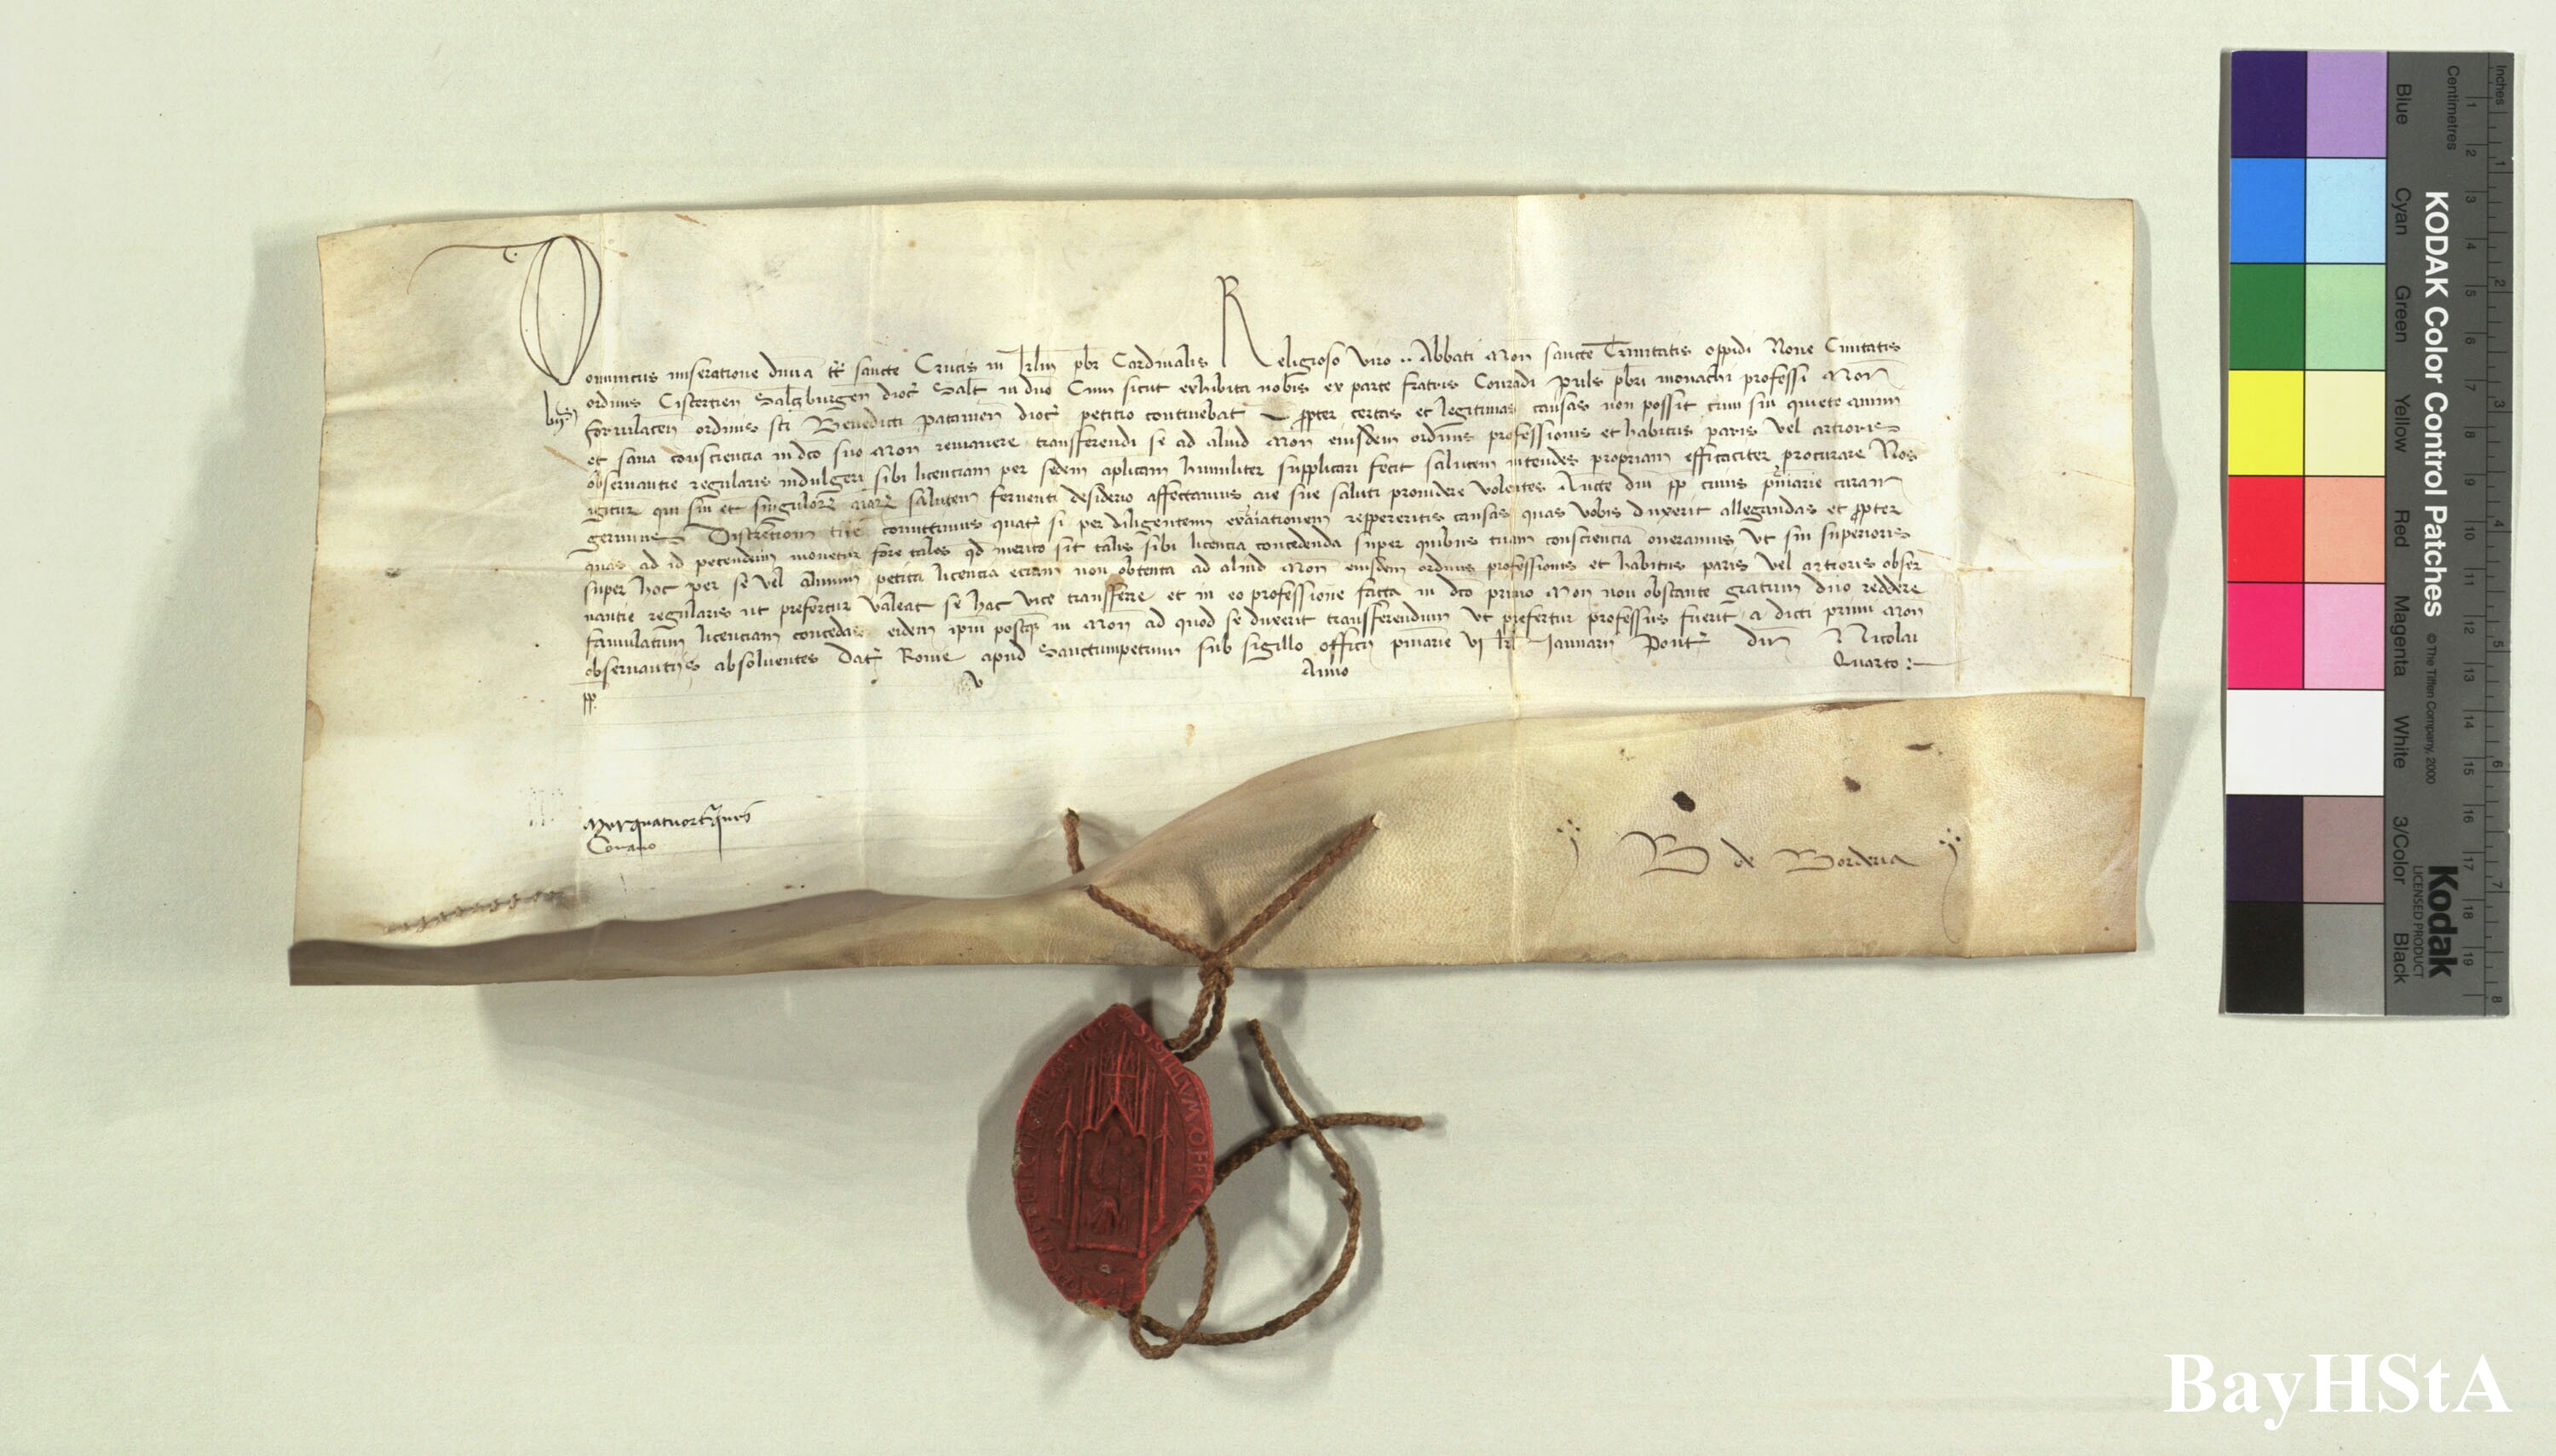 Dominicus miseratione divīa tt̄ sancte Crucis in Jrlm̄ pb̄r Cardinalis Religioso viro ·· Abbati Mon̄ sancte Trinitatis oppidi Noue Ciuitatis
ordinis Cistercien̄ Saltzburgen̄ dioc̄ Salt̄ in dno Cum sicut exhibita nobis ex parte fratris Conradi pb̄ri monachi professi Mon̄
formbacen̄ ordinis sc̄i Benedicti Patauien̄ dioc̄ petitio continebat ꝓpter certas et legitimas causas non possit cum sui quiete animi
et sana consciencia in dc̄o suo Mon̄ remanere transferendi se ad aliud Mon̄ eiusdem ordinis professionis et habitus paris vel artioris
obseruantie regularis indulgeri sibi licenciam per sedem aplicam humiliter supplicari fecit salutem intendēs propriam efficaciter procurare Nos
igitur qui sui et singulorꝝ aiarꝝ salutem feruenti desiderio affectamus aīe sue saluti prouidere volentes Aucte dn̄i pp̄ cuius pn̄iarie curam
gerimus Discretioni tue committimus quat̄ si per diligentem exaiationem reppereritis causas quas vobis duxerit allegandas et ꝓpter
quas ad id petendum monetur fore tales qd̄ merito sit talis sibi licencia concedenda super quibus tuam conscienciā oneramus vt sui superioris
super hoc per se vel alium petita licencia eciam non obtenta ad aliud Mon̄ eiusdem ordinis professionis et habitus paris vel artioris obser
uantie regularis ut prefertur valeat se hac vice transferre et in eo professione facta in dc̄o primo Mon̄ non obstante gratum dn̄o reddere
famulatum licenciam concedas eidem ip̄m postq̄ in Mon̄ ad quod se duxerit transferendum vt prefertur professus fuerit a dicti primi Mon̄
obseruantijs absoluentes Dat̄ Rome apud Sanctumpetrum sub sigillo officij pn̄iarie vj kl̄ Januarij Pont̄ dn̄i Nicolai
pp̄. v Anno Quarto :
B de Borderia
SIGILLVM OFFICII
KODAK Color Control Patches
© The Tiffen Company, 2000
Kodak
LICENSED PRODUCT
Inches 1 2 3 4 5 6 7 8
Centimetres 1 2 3 4 5 6 7 8 9 10 11 12 13 14 15 16 17 18 19
Blue Cyan Green Yellow Red Magenta White 3/Color Black
BayHStA